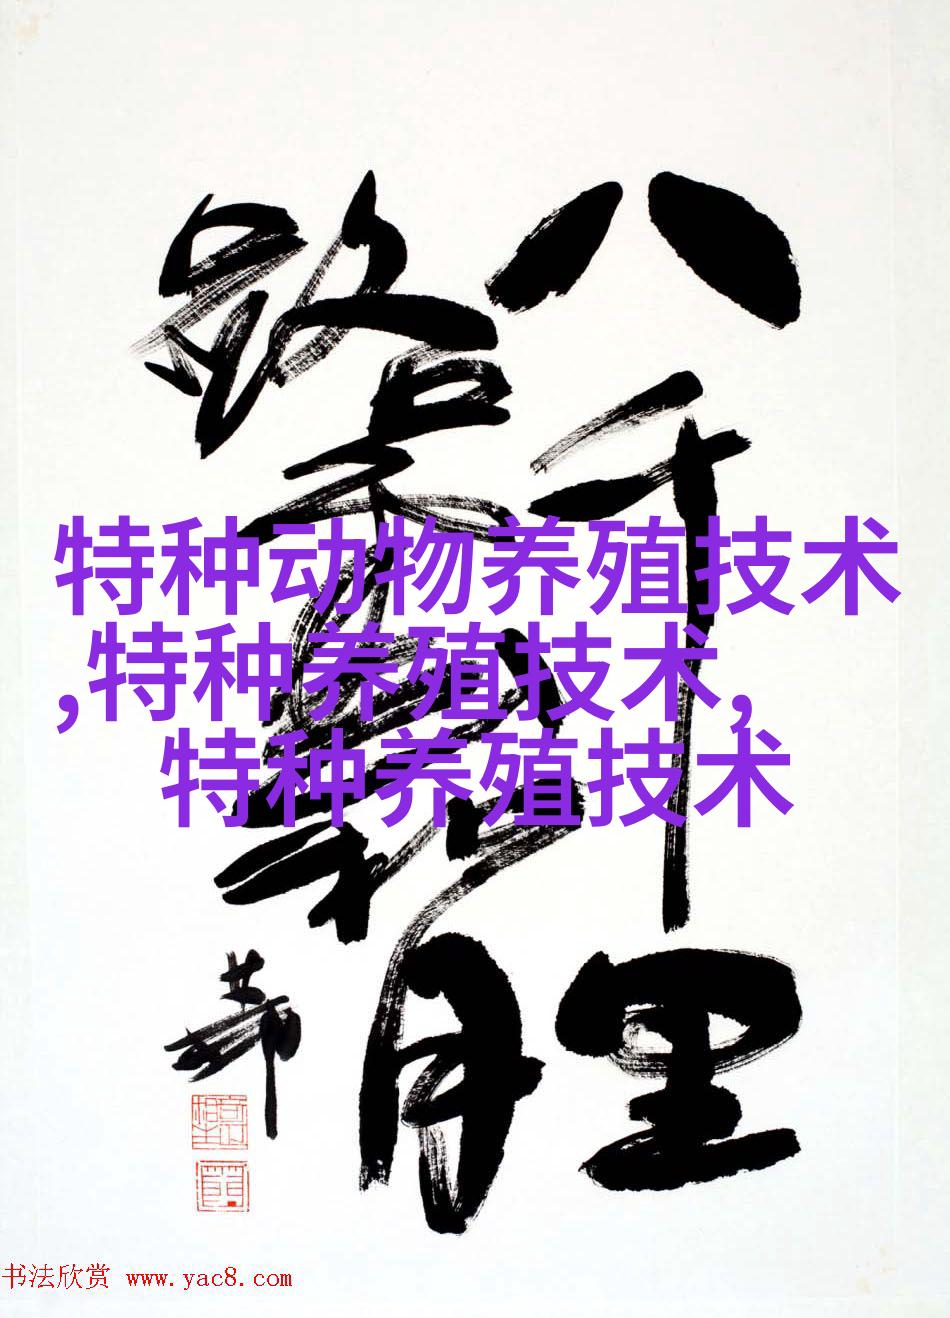 八千里
路云和月
特种动物养殖技术
,特种养殖技术,
特种养殖技术
书法欣赏 www.yac8.com